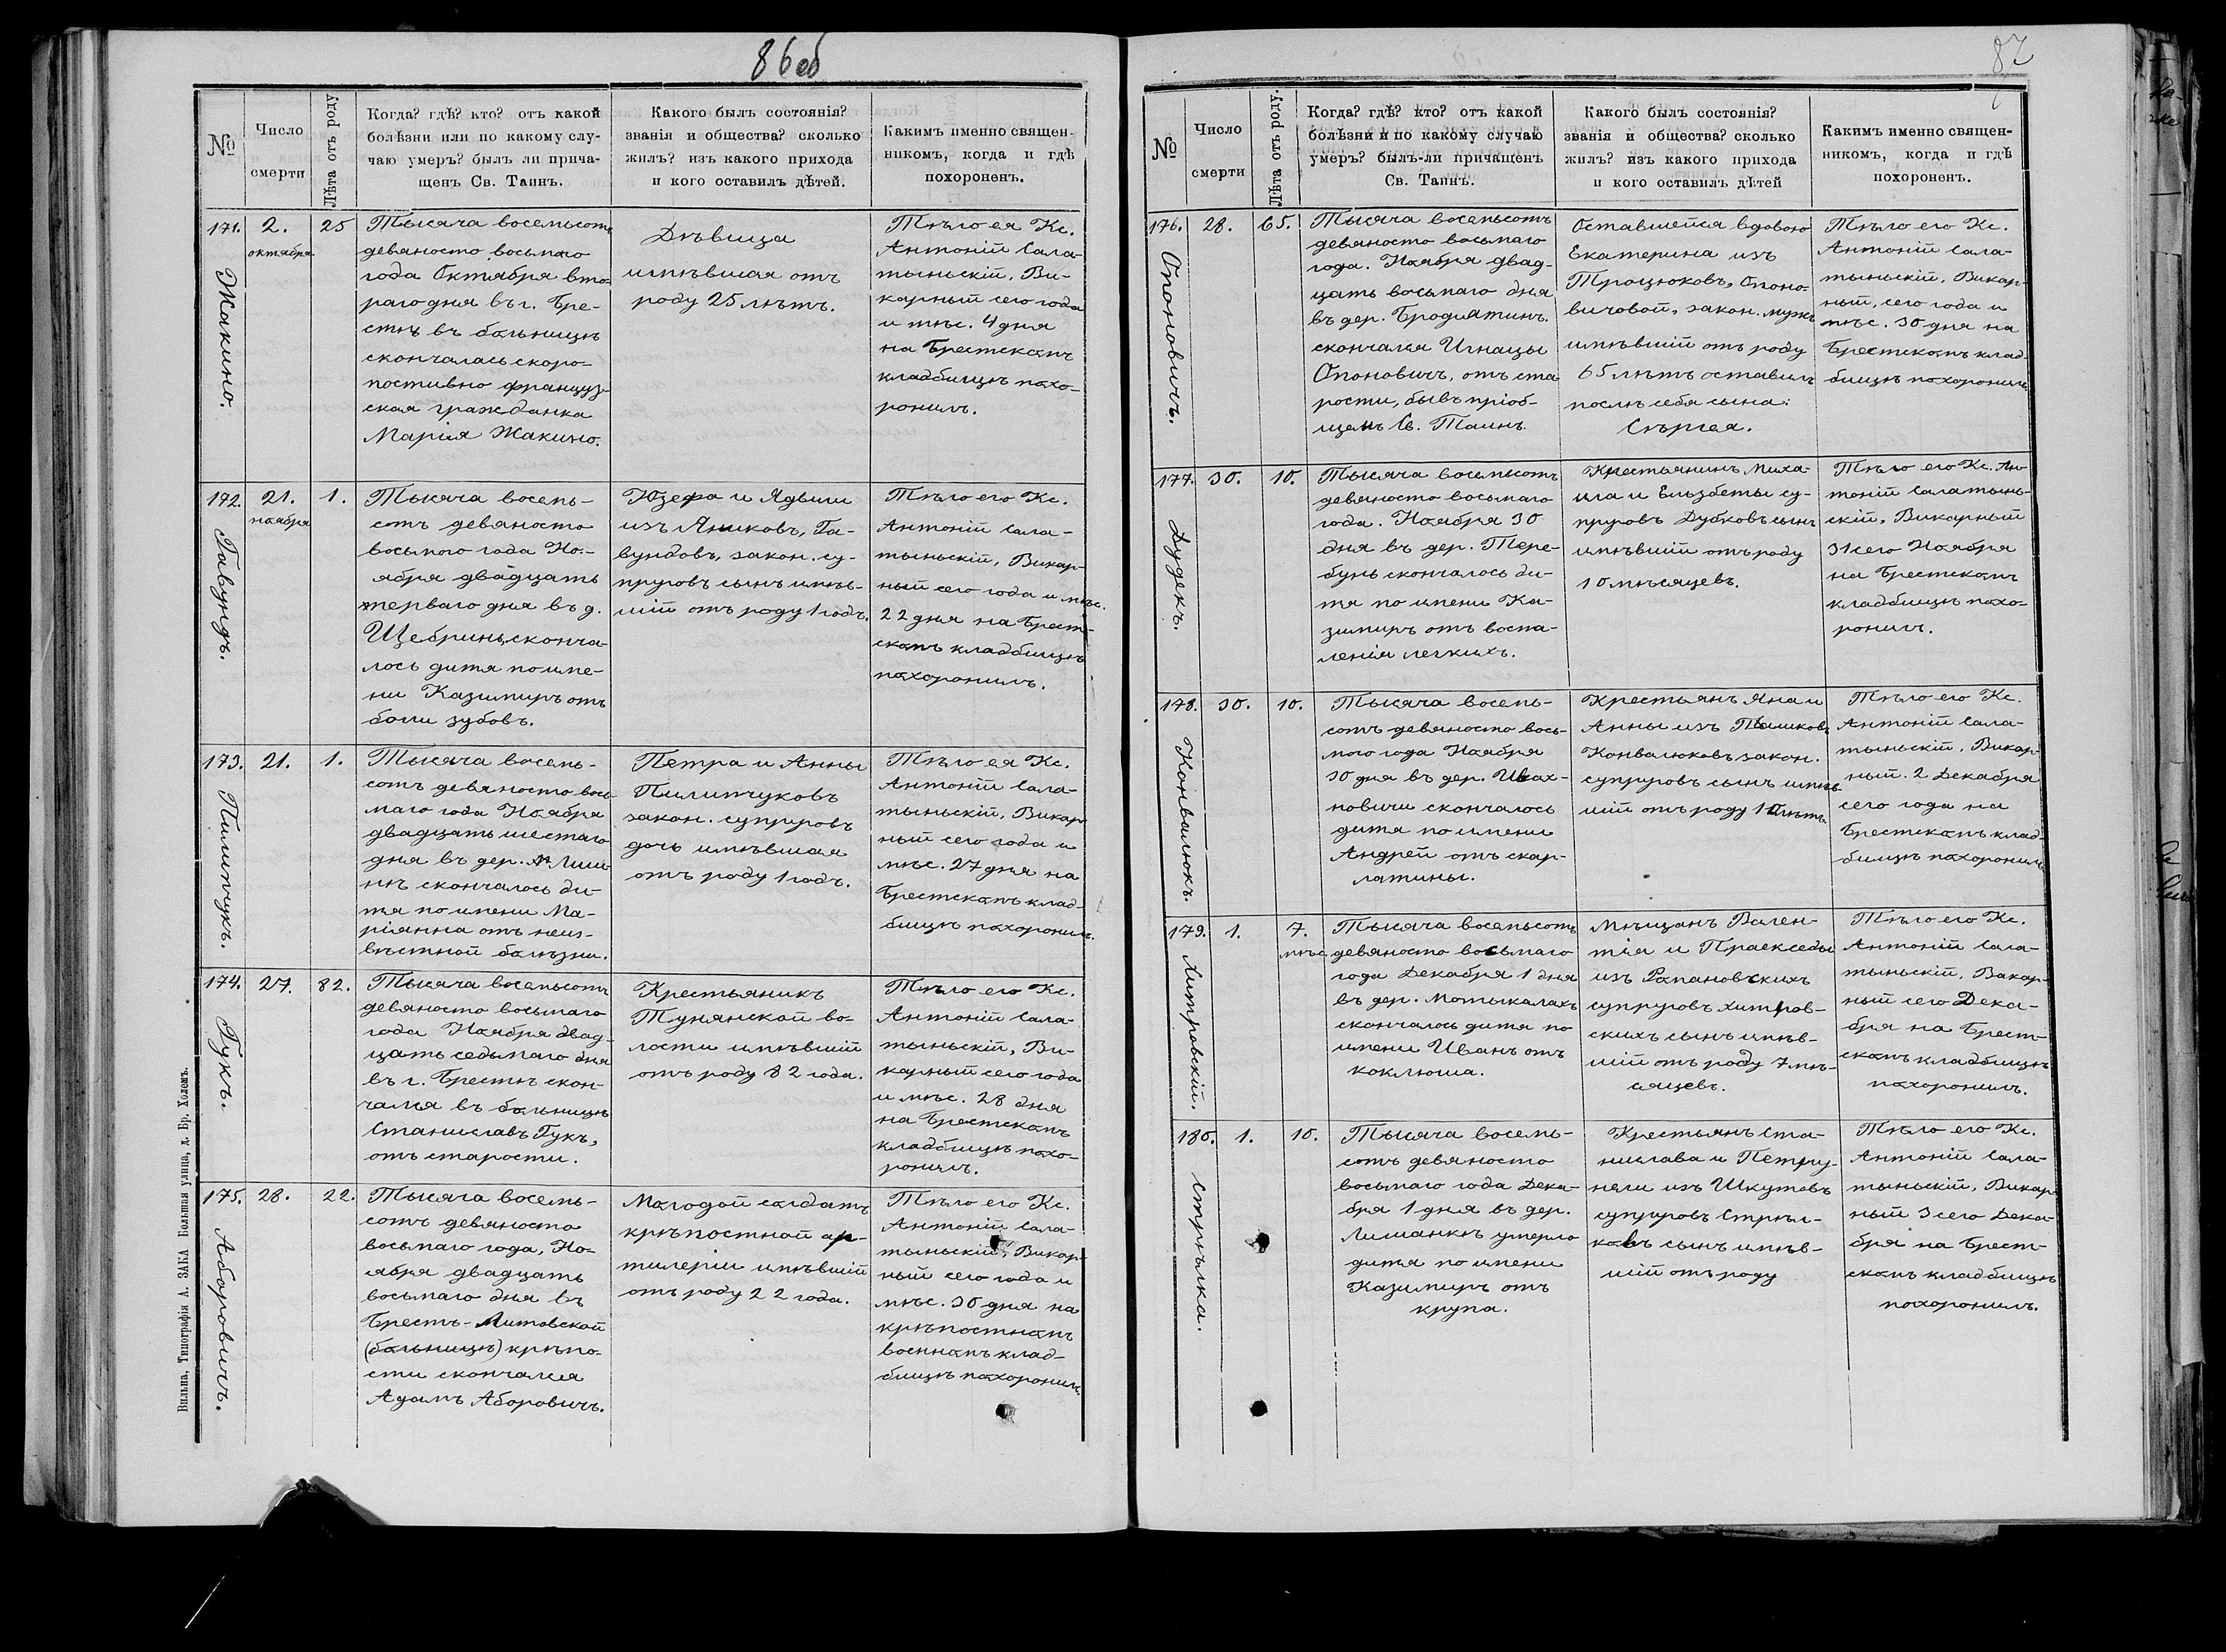 86 об
№
Число
смерти
Лѣта отъ роду
Когда? гдѣ? кто? отъ какой
болѣзни или по какому слу-
чаю умеръ? былъ ли прича-
щенъ Св. Таинъ.
Какого былъ состоянія?
званія и общества? сколько
жилъ? изъ какого прихода
и кого оставилъ дѣтей.
Какимъ именно священ-
никомъ, когда и гдѣ
похороненъ.
171.
Жакино.
2.
октября
25
Тысяча восемьсотъ
девяносто восьмаго
года Октября вто-
раго дня въ г. Бре-
стѣ въ больницѣ
скончалась скоро-
постижно француз-
ская гражданка
Марія Жакино.
Дѣвица
имѣвшая отъ
роду 25 лѣтъ.
Тѣло ея Кс.
Антоній Сала-
тыньскій, Ви-
карный сего года
и мѣс. 4 дня
на Брестскомъ
кладбищѣ похо-
ронилъ.
172.
Гавундъ.
21.
ноября
1.
Тысяча восемь-
сотъ девяносто
восьмого года Но-
ября двадцать
перваго дня въ д.
Щебринь сконча-
лось дитя по име-
ни Казимиръ отъ
боли зубовъ.
Юзефа и Ядвиги
изъ Яшковъ, Га-
вундовъ, закон. су-
пруговъ сынъ имѣв-
шій отъ роду 1 годъ.
Тѣло его Кс.
Антоній Сала-
тыньскій, Викар-
ный сего года и мѣс.
22 дня на Брест-
скомъ кладбищѣ
похоронилъ.
173.
Пилипчукъ.
21.
1.
Тысяча восемь-
сотъ девяносто вось-
маго года Ноября
двадцать шестаго
дня въ дер. Лиш-
нѣ скончалось ди-
тя по имени Ма-
ріянна отъ неиз-
вѣстной болѣзни.
Петра и Анны
Пилипчуковъ
закон. супруговъ
дочь имѣвшая
отъ роду 1 годъ.
Тѣло ея Кс.
Антоній Сала-
тыньскій, Викар
ный сего года и
мѣс. 27 дня на
Брестскомъ клад-
бищѣ похоронилъ.
174.
Гукъ.
27.
82.
Тысяча восемьсотъ
девяносто восьмаго
года Ноября двад-
цать седьмаго дня
въ г. Брестѣ скон-
чался въ больницѣ
Станиславъ Гукъ,
отъ старости.
Крестьяникъ
Тунянской во-
лости имѣвшій
отъ роду 82 года.
Тѣло его Кс.
Антоній Сала-
тыньскій, Ви-
карный сего года
и мѣс. 28 дня
на Брестскомъ
кладбищѣ похо-
ронилъ.
175.
Аборовичъ.
28.
22.
Тысяча восемь-
сотъ девяносто
восьмаго года, Но-
ября двадцать
восьмаго дня въ
Брестъ-Литовской
(больницѣ) крѣпо-
сти скончался
Адамъ Аборовичъ.
Молодой солдатъ
крѣпостной ар-
тилеріи имѣвшій
отъ роду 22 года.
Тѣло его Кс.
Антоній Сала-
тыньскій, Викар-
ный сего года и
мѣс. 30 дня на
крѣпостномъ
военномъ клад-
бищѣ похоронилъ.
Вильна, Типографія А. ЗАКА Большая улица, д. Бр. Холемъ.
87
№
Число
смерти
Лѣта отъ роду.
Когда? гдѣ? кто? отъ какой
болѣзни и по какому случаю
умеръ? былъ-ли причащенъ
Св. Таинъ.
Какого былъ состоянія?
званія и общества? сколько
жилъ? изъ какого прихода
и кого оставилъ дѣтей
Какимъ именно священ-
никомъ, когда и гдѣ
похороненъ.
176.
Опоновичъ.
28.
65.
Тысяча восемьсотъ
девяносто восьмаго
года. Ноября двад-
цать восьмаго дня
въ дер. Бродятинъ.
скончался Игнацы
Опоновичъ, отъ ста
рости, бывъ пріоб-
щемъ Св. Таинъ.
Оставшейся вдовою
Екатерина изъ
Троцюковъ, Опоно-
вичовой, закон. мужъ
имѣвшій отъ роду
65 лѣтъ оставилъ
послѣ себя сына:
Сѣргея.
Тѣло его Кс.
Антоній Сала-
тыньскій, Викар-
ный, сего года и
мѣс. 30 дня на
Брестскомъ клад-
бищѣ похоронилъ.
177.
Дудекъ.
30.
10.
Тысяча восемьсотъ
девяносто восьмаго
года. Ноября 30
дня въ дер. Тере-
бунь скончалось ди-
тя по имени Ка-
зимиръ отъ воспа-
ленія легкихъ.
Крестьянинъ Миха-
ила и Ельзбеты су-
пруговъ Дубковъ сынъ
имѣвшій отъ роду
10 мѣсяцевъ.
Тѣло его Кс. Ан-
тоній Салатынь-
скій, Викарный
31 сего Ноября
на Брестскомъ
кладбищѣ похо-
ронилъ.
178.
Конвалюкъ.
30.
10.
Тысяча восемь-
сотъ девяносто вось-
мого года Ноября
30 дня въ дер. Ивах-
новичи скончалось
дитя по имени
Андрей отъ скар-
латины.
Крестьянъ Яна и
Анны изъ Пашковъ
Конвалюковъ закон.
супруговъ сынъ имѣв-
шій отъ роду 10 лѣтъ.
Тѣло его Кс.
Антоній Сала-
тыньскій, Викар-
ный. 2 Декабря
сего года на
Брестскомъ клад-
бищѣ похоронилъ
179.
Хитровскій.
1.
7.
мѣс.
Тысяча восемьсотъ
девяносто восьмаго
года Декабря 1 дня
въ дер. Мотыкалахъ
скончалось дитя по
имени Иванъ отъ
коклюша.
Мѣщанъ Вален-
тія и Праекседы
изъ Рапановскихъ
супруговъ Хитров-
скихъ сынъ имѣв-
шій отъ роду 7 мѣ-
сяцевъ.
Тѣло его Кс.
Антоній Сала-
тыньскій, Вакар-
ный сего Дека-
бря на Брест-
скомъ кладбищѣ
похоронилъ.
180.
Стрѣлка.
1.
10.
Тысяча восемь-
сотъ девяносто
восьмаго года Дека-
бря 1 дня въ дер.
Лишанкѣ умерло
дитя по имени
Казимиръ отъ
крупа.
Крестьянъ Ста-
нислава и Петру-
нели изъ Шкутовъ
супруговъ Стрѣл-
ковъ сынъ имѣв-
шій отъ роду
Тѣло его Кс.
Антоній Сала-
тыньскій, Викар-
ный 3 сего Дека-
бря на Брест-
скомъ кладбищѣ
похоронилъ.